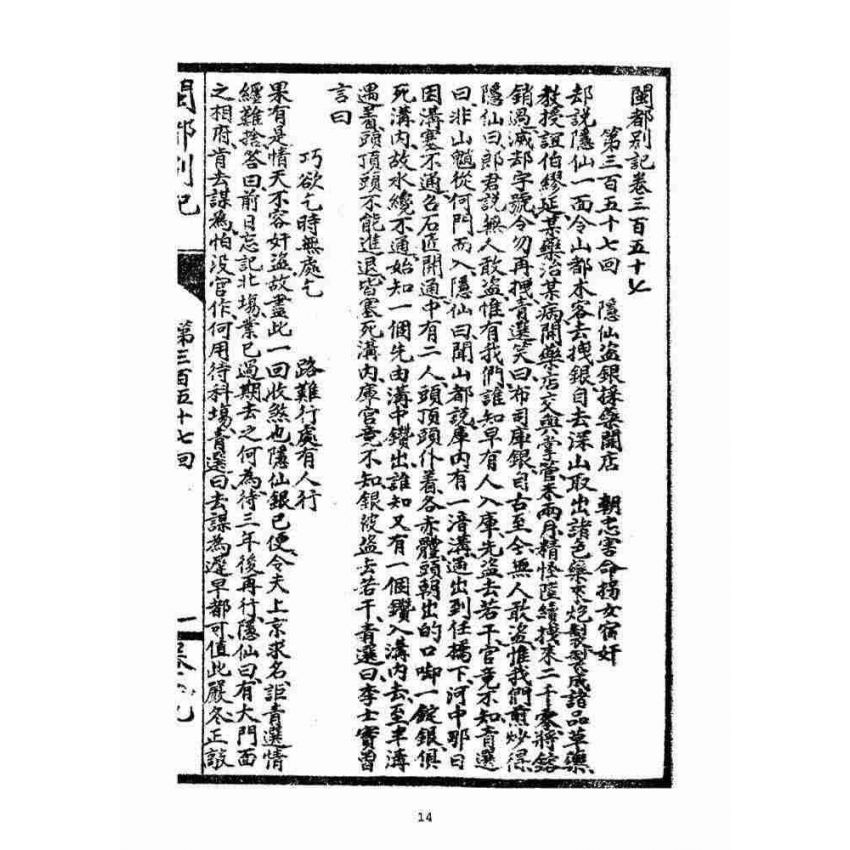 閩都別記卷三百五十七
第三百五十七回　隱仙盜銀採藥開店　朝忠害命揚女宿奸
却說隱仙一面令山都木客去拽銀自去深山取出諸色藥來炮製製成諸品草藥
教授誼伯繆延某藥治某病開藥店交與掌管未兩月精怪陸續拽來二千零將鎔
銷過滅却字號令勿再拽青選笑曰布司庫銀自古至今無人敢盜惟我們煎炒得
隱仙曰郎君說無人敢盜惟有我們誰知早有人入庫先盜去若干官竟不知青選
曰非山魈從何門而入隱仙曰聞山都說庫內有一涪溝通出到任橋下河中那日
因溝塞不通召石匠開通中有二人頭頂頭仆着各赤體頭朝出的口啣一錠銀俱
死溝內故水纔不通始知一個先由溝中鑽出誰知又有一個鑽入溝內去至半溝
遇着頭頂頭不能進退皆塞死溝內庫官竟不知銀被盜去若干青選曰李士實曾
言曰
巧欲乞時無處乞　路難行處有人行
果有是情天不容奸盜故盡此一回收煞也隱仙銀已便令夫上京求名詎青選情
纏難捨答曰前日忘記北場業已過期去之何為待三年後再行隱仙曰有大門面
之相府肯去謀為怕沒官作何用待科場青選曰去謀為遲早都可值此嚴冬正設
閩都別記
第三百五十七回
一
14